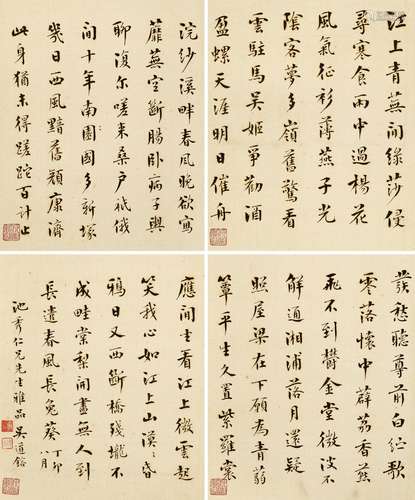 江上青蕪間綠莎侵
尋寒食雨中過楊花
風氣征衫薄燕子光
陰客夢多嶺舊驚看
雲駐馬吳姬爭勸酒
盈螺天涯明日催舟
浣紗溪畔春風晚欲寫
蘼蕪空斷腸卧病子輿
聊復尔嗟来桑户祇俄
間十年南園國多新塚
幾日西風黯舊顏康濟
此身猶未得蹉跎百計止
發愁聽尊前白紵歌
零落懷中薜荔香燕
飛不到鬱金堂微波不
解通湘浦落月還疑
照屋梁在下願為青蒻
簟平生久置紫羅囊
應間坐看江上微雲起
笑我心如江上山漠漠昏
鴉日又西斷橋殘壠不
成畦棠梨開盡無人到
長遣春風長兔葵 丁卯八月
池秀仁兄先生雅品 吳道鎔